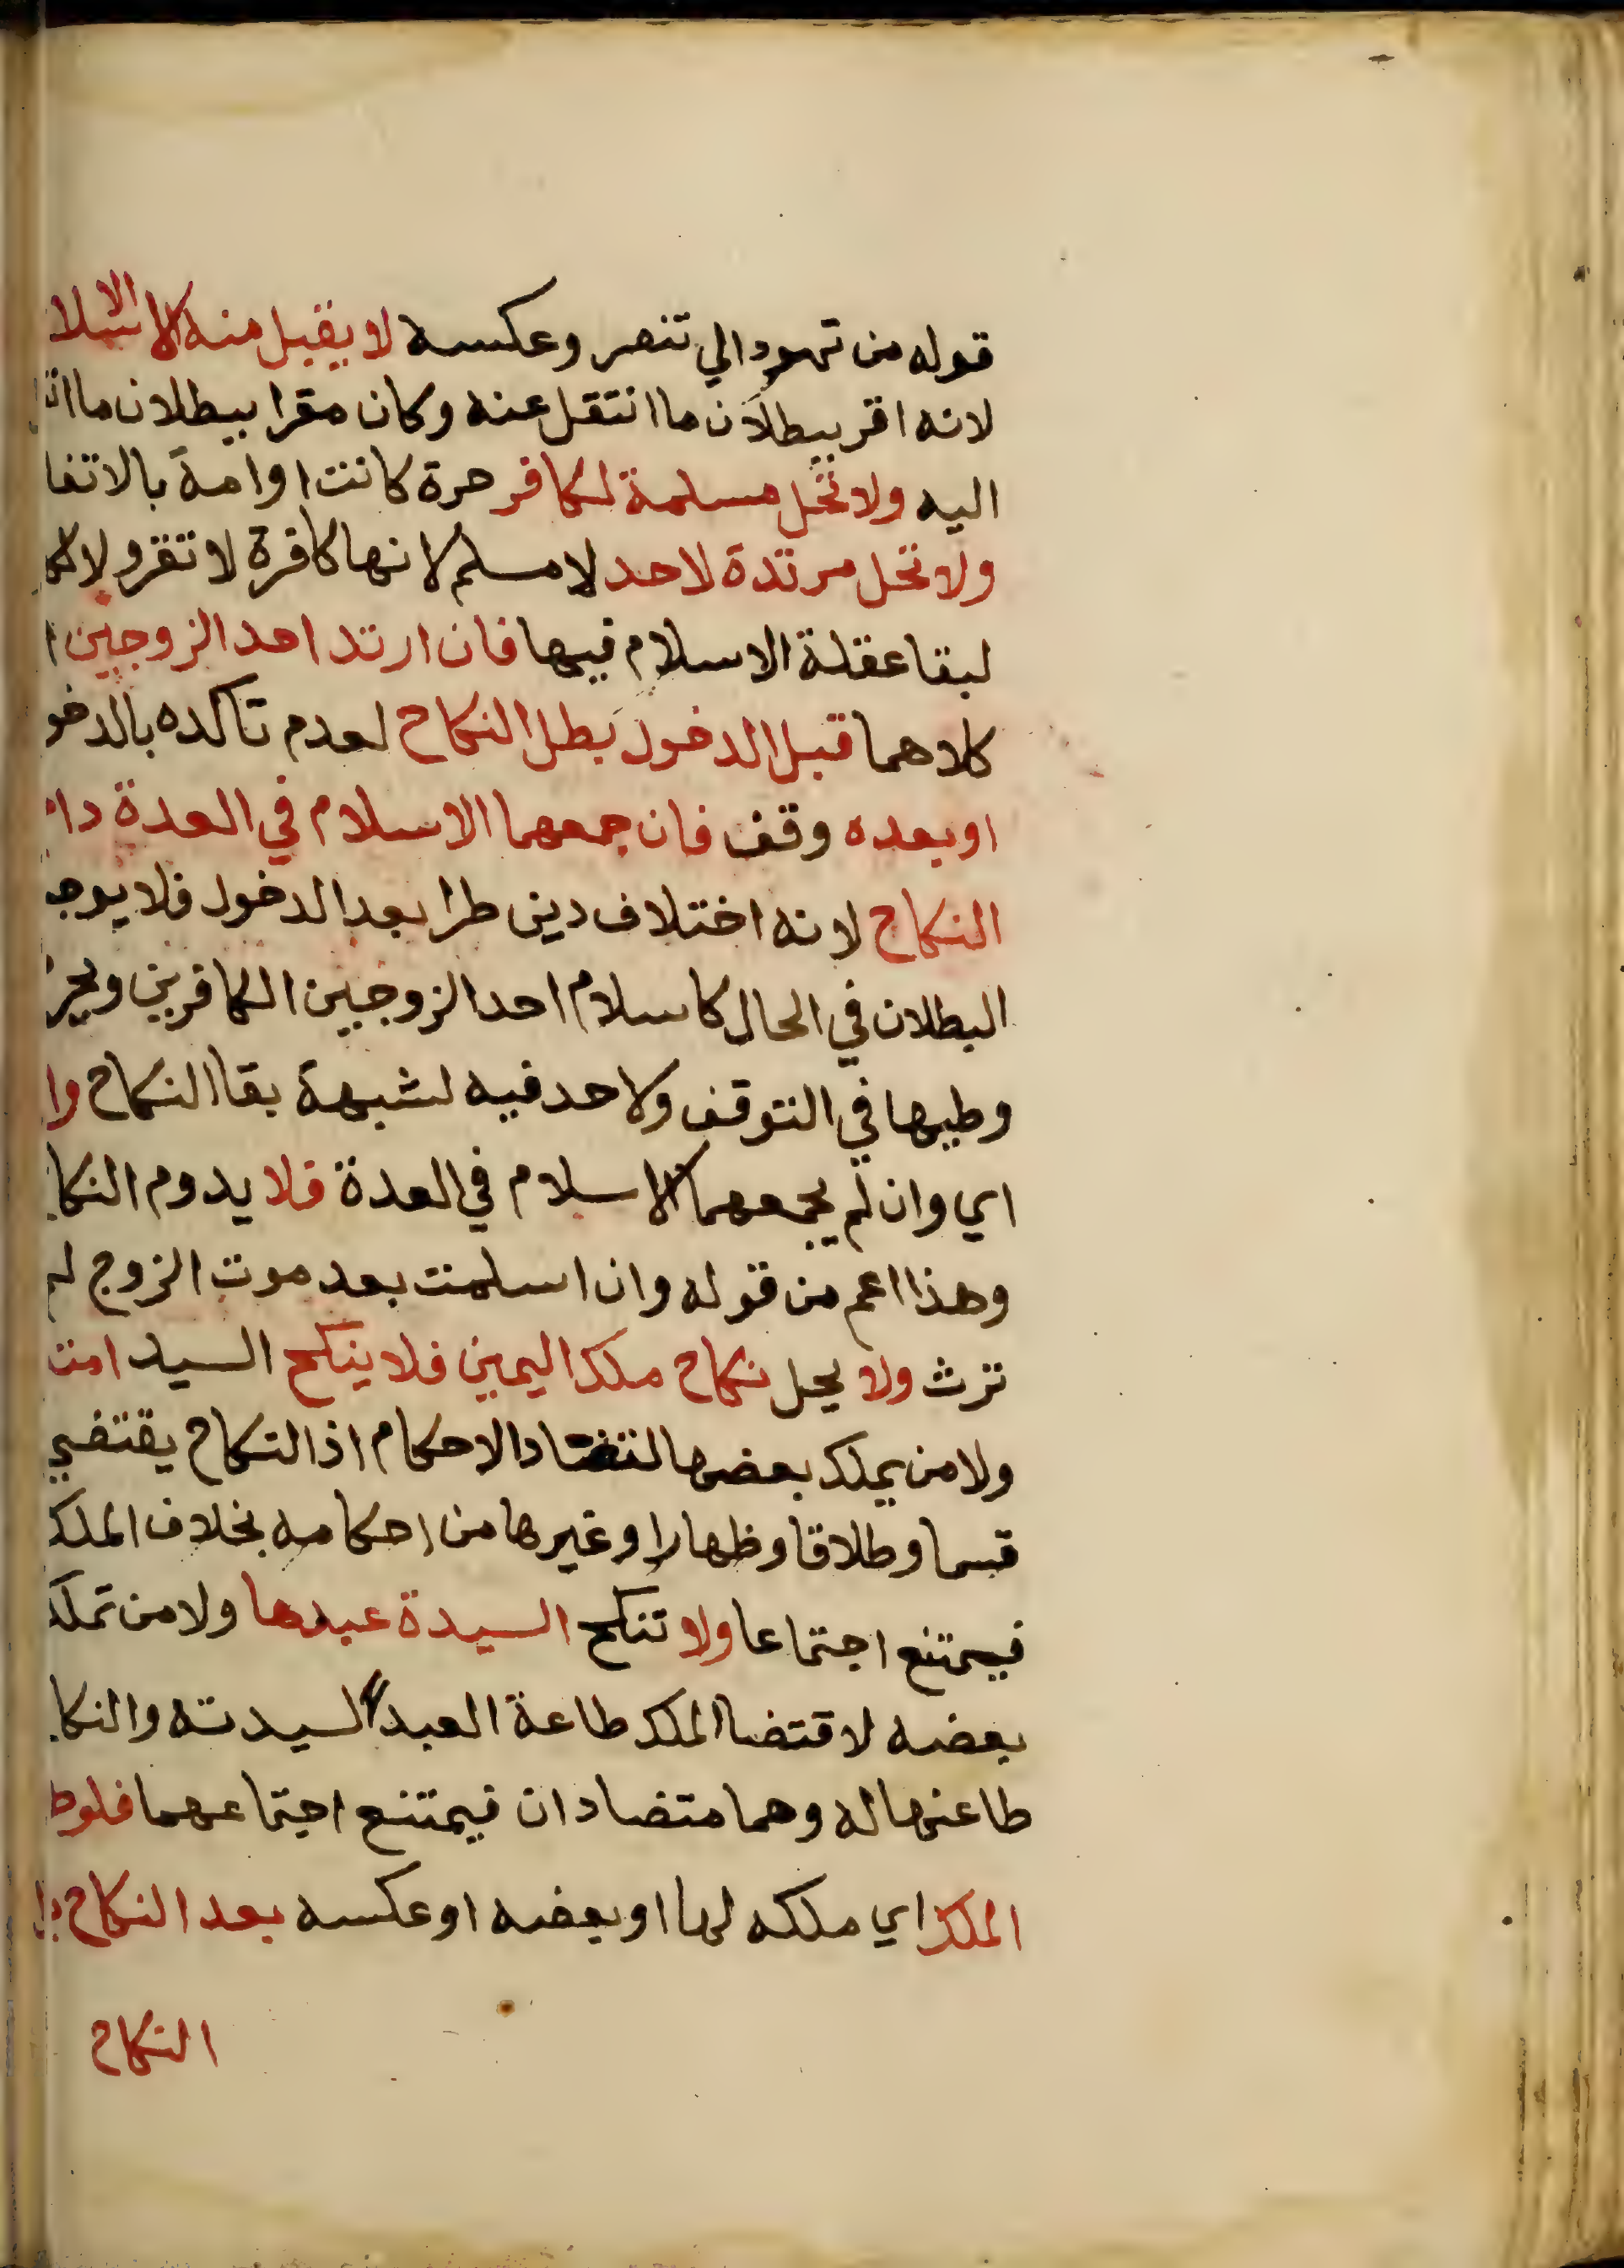 قوله من تهود الي تنصر وعكسه لا يقبل منه الا الاسلا
لانه اقر ببطلان ما انتقل عنه وكان مقرا ببطلان ما انت
اليه ولا تحل مسلمة لكافر حرة كانت او امة بالاتفا
ولا تحل مرتدة لاحد لا مسلم لانها كافرة لا تقر ولا لكا
لبقا عقلة الاسلام فيها فان ارتد احد الزوجين ا
كلاهما قبل الدخول بطل النكاح لعدم تاكده بالدخو
او بعده وقف فان جمعهما الاسلام في العدة دا
النكاح لانه اختلاف دين طرا بعد الدخول فلا يوجـ
البطلان في الحال كاسلام احد الزوجين الكافرين ويحر
وطيها في التوقف ولا حد فيه لشبهة بقا النكاح وا
اي وان لم يجمعهما الاسلام في العدة فلا يدوم النكا
وهذا اعم من قوله وان اسلمت بعد موت الزوج لم
ترث ولا يحل نكاح ملك اليمين فلا ينكح السيد امت
ولا من يملك بعضها لتضاد الاحكام اذ النكاح يقتضي
قسما وطلاقا وظهارا وغيرها من احكامه بخلاف الملك
فيمتنع اجتماعا ولا تنكح السيدة عبدها ولا من تملك
بعضه لاقتضا الملك طاعة العبد لسيدته والنكا
طاعتها له وهما متضادان فيمتنع اجتماعهما فلو ط
الملك اي ملكه لها او بعضه او عكسه بعد النكاح
النكاح